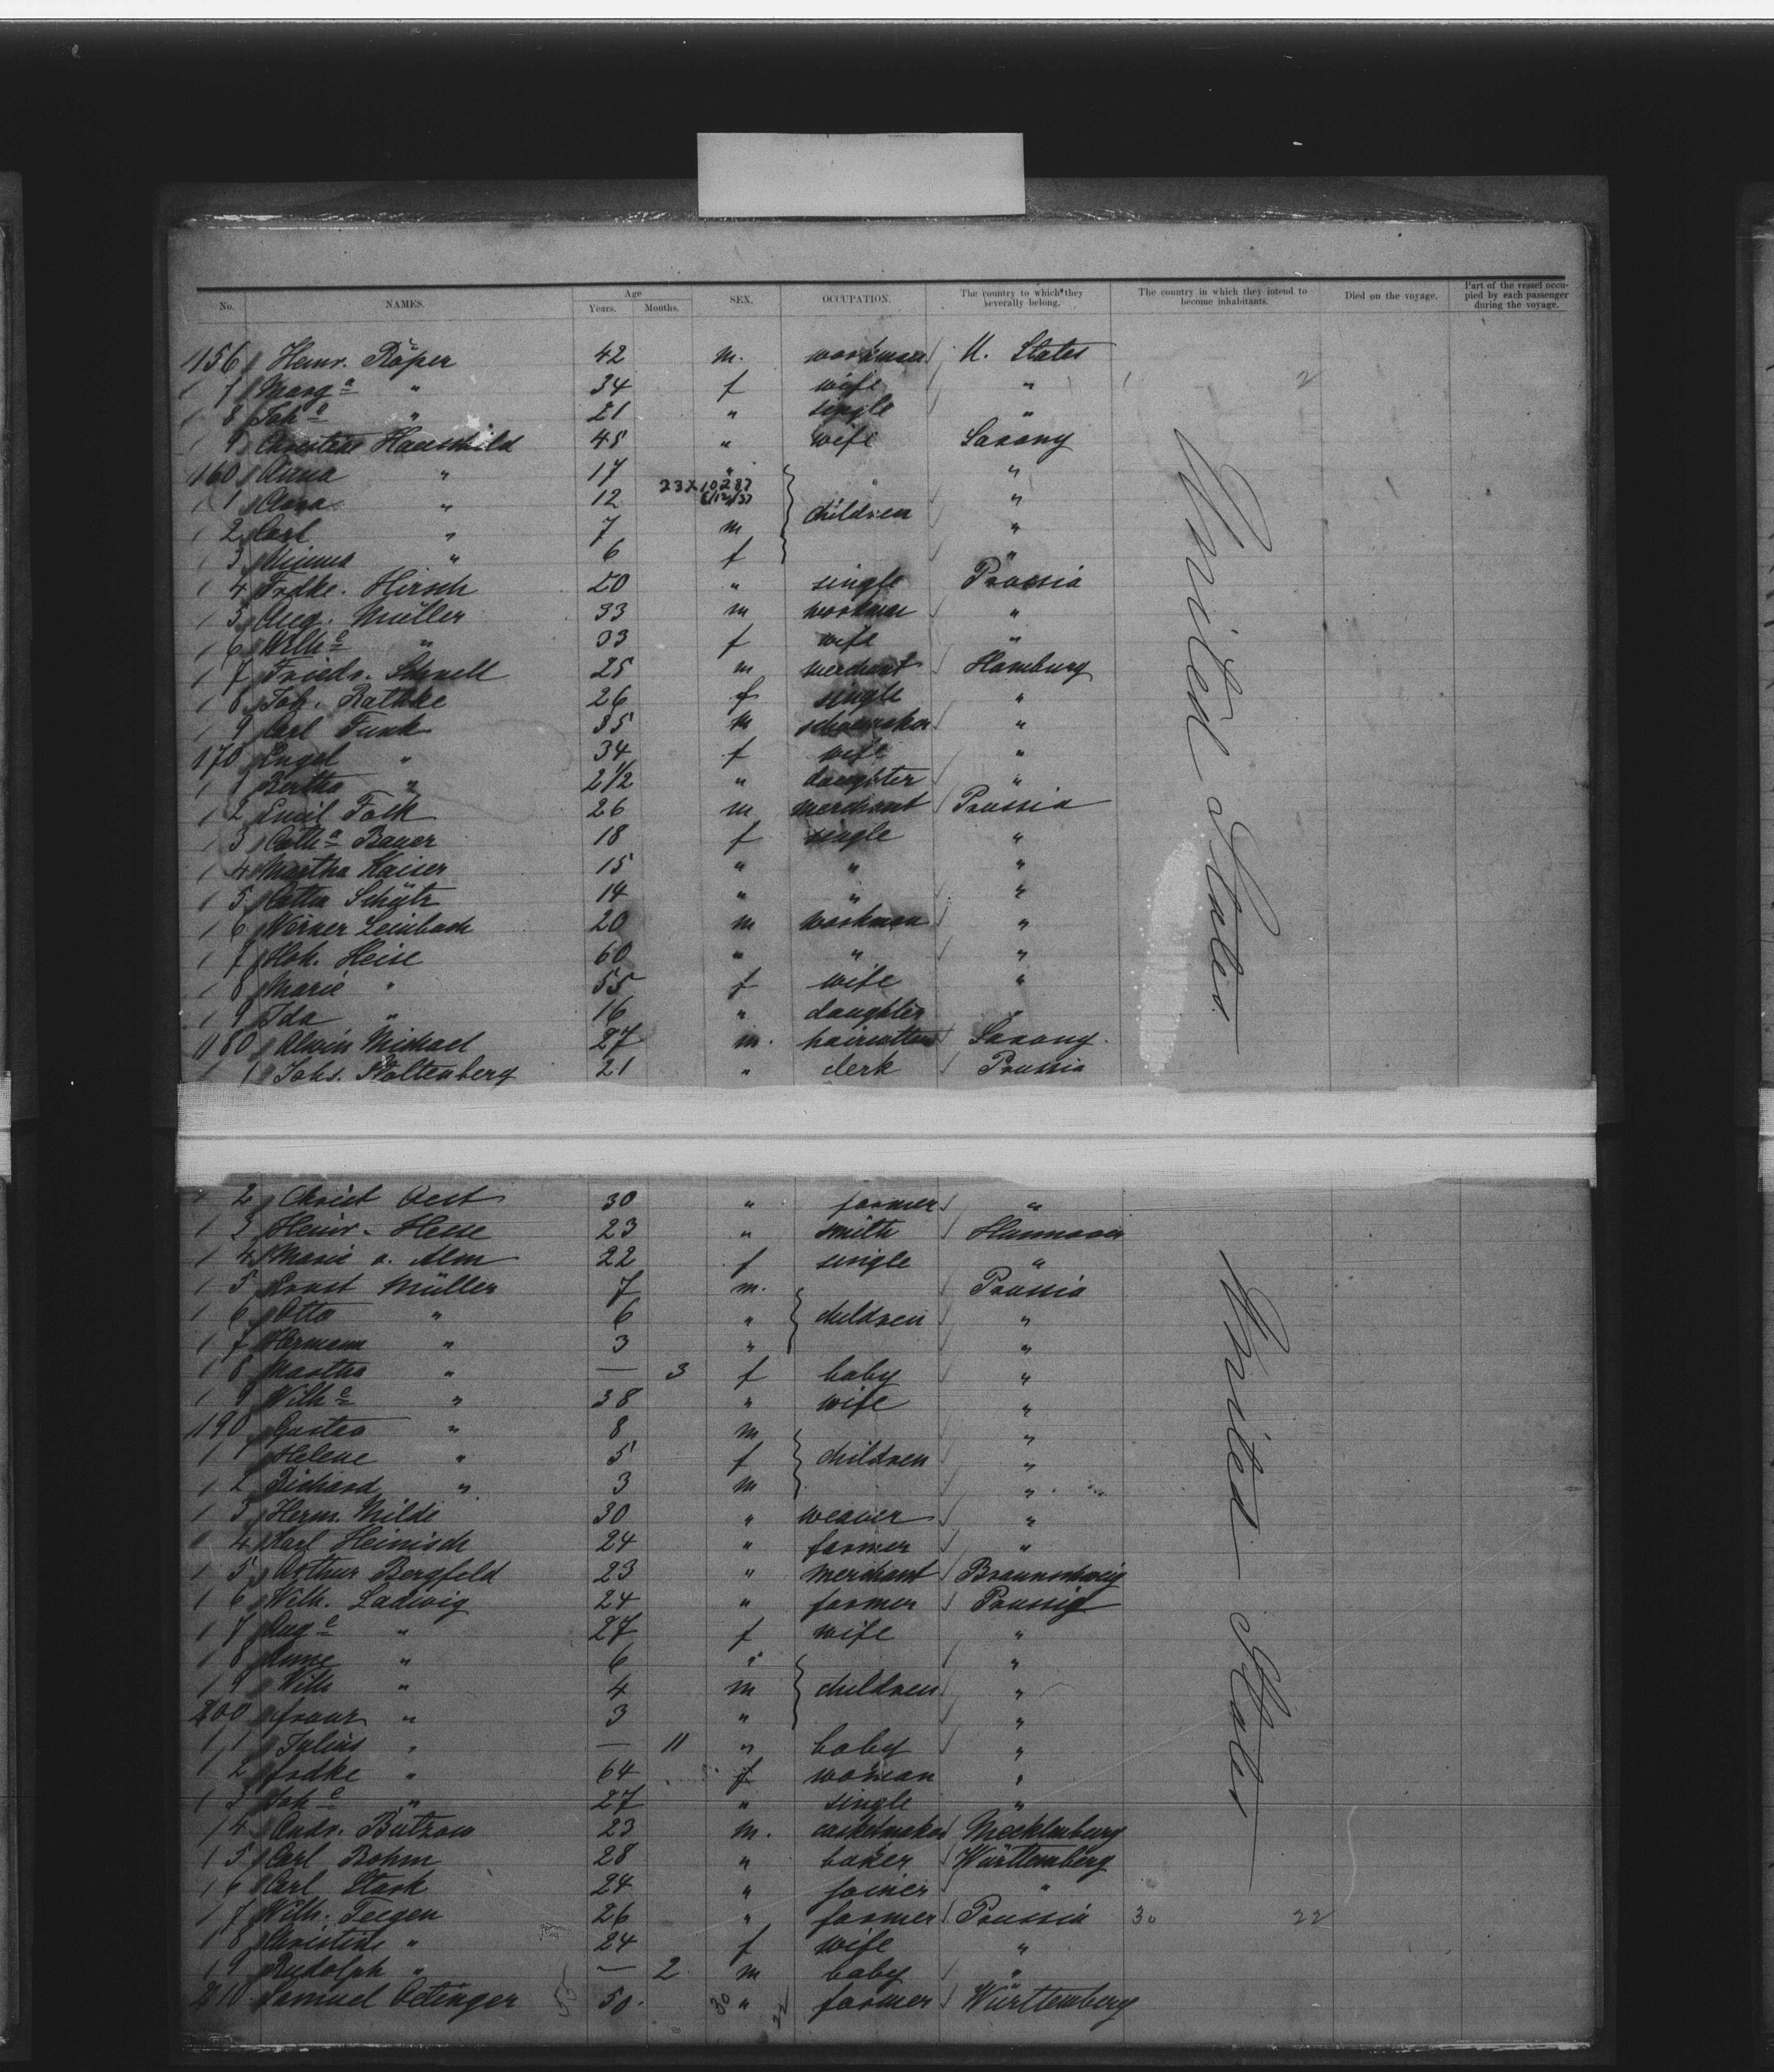 No. NAMES. Age Years. Months. SEX. OCCUPATION. The country to which they severally belong. The country in which they intend to become inhabitants. Died on the voyage. Part of the vessel occupied by each passenger during the voyage.
156 Heinr. Röper 42 m. workman U. States
7 Marg.a " 34 f wife "
8 Joh.e " 21 " single "
9 Christine Hauschild 45 " wife Saxony
160 Anna " 17 " "
23X10287
1 Clara " 12 6/12/37 children "
2 Carl " 7 m "
3 Minna " 6 f "
4 Frdke. Hirsch 20 " single Prussia
5 Aug. Müller 33 m workman "
6 Wilh.e " 33 f wife "
7 Friedr. Schnell 25 m merchant Hamburg
8 Joh. Rathke 26 f single "
9 Carl Funk 35 m schoemaker "
170 Engel " 34 f wife "
1 Bertha " 2 1/2 " daughter "
2 Emil Falk 26 m merchant Prussia
3 Cath.a Bauer 18 f single "
4 Martha Kaiser 15 " " "
5 Schütz 14 " " "
6 Werner Leimbach 20 m workman "
7 Heise 60 " " "
8 Marie " 55 f wife "
9 Ida " 16 " daughter "
180 Alwin Michael 27 m. haircutter Saxony
1 Johs. Stoltenberg 21 " clerk Prussia
United States
2 Christ Oest 30 " farmer "
3 Heinr. Hesse 23 " smith Hannover
4 Marie v. Alm 22 f single "
5 Ernst Müller 7 m. Prussia
6 Otto " 6 " children "
7 Hermann " 3 " "
8 Martha " — 3 f baby "
9 Wilh.e " 38 " wife "
190 Gustav " 8 m "
1 Helene " 5 f children "
2 Richard " 3 m "
3 Herm. Milde 30 " weaver "
4 Karl Heinisch 24 " farmer "
5 Arthur Bergfeld 23 " merchant Braunschweig
6 Wilh. Ladwig 24 " farmer Prussia
7 Aug.e " 27 f wife "
8 Anne " 6 " "
9 Wilh " 4 m children "
200 Franz " 3 " "
1 Julius " — 11 " baby "
2 Frdke " 64 f woman "
3 Joh.e " 27 " single "
4 Andr. Bützow 23 m. Mecklenburg
5 Carl Bohm 28 " baker Württemberg
6 Carl Stark 24 " joiner "
7 Wilh. Feegen 26 " farmer Prussia 30 22
8 Christine " 24 f wife "
9 Rudolph " — 2 m baby "
210 Samuel Oetinger 50 " farmer Württemberg
United States